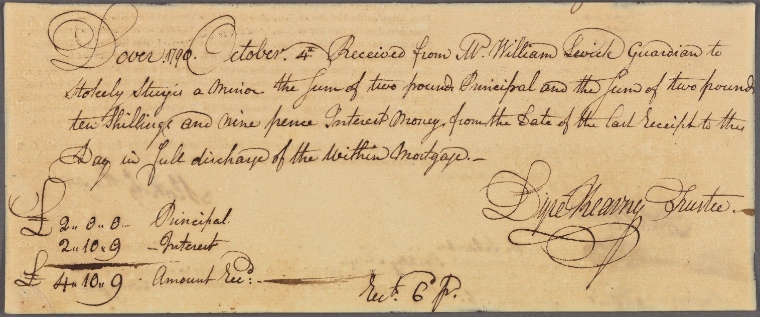 Dover 1790. October. 4th Received from Mr. William Levick Guardian to
Stokely Sturgis a Minor the Sum of two pounds Principal and the Sum of two pounds
ten Shillings and nine pence Interest Money, from the Date of the last Receipt to this
Day in full discharge of the Within Mortgage. —
Dyre Kearny Trustee. —
£ 2 „ 0 „ 0 — Principal.
2 „ 10 „ 9 — Interest
£ 4 „ 10 „ 9 Amount Recd. —